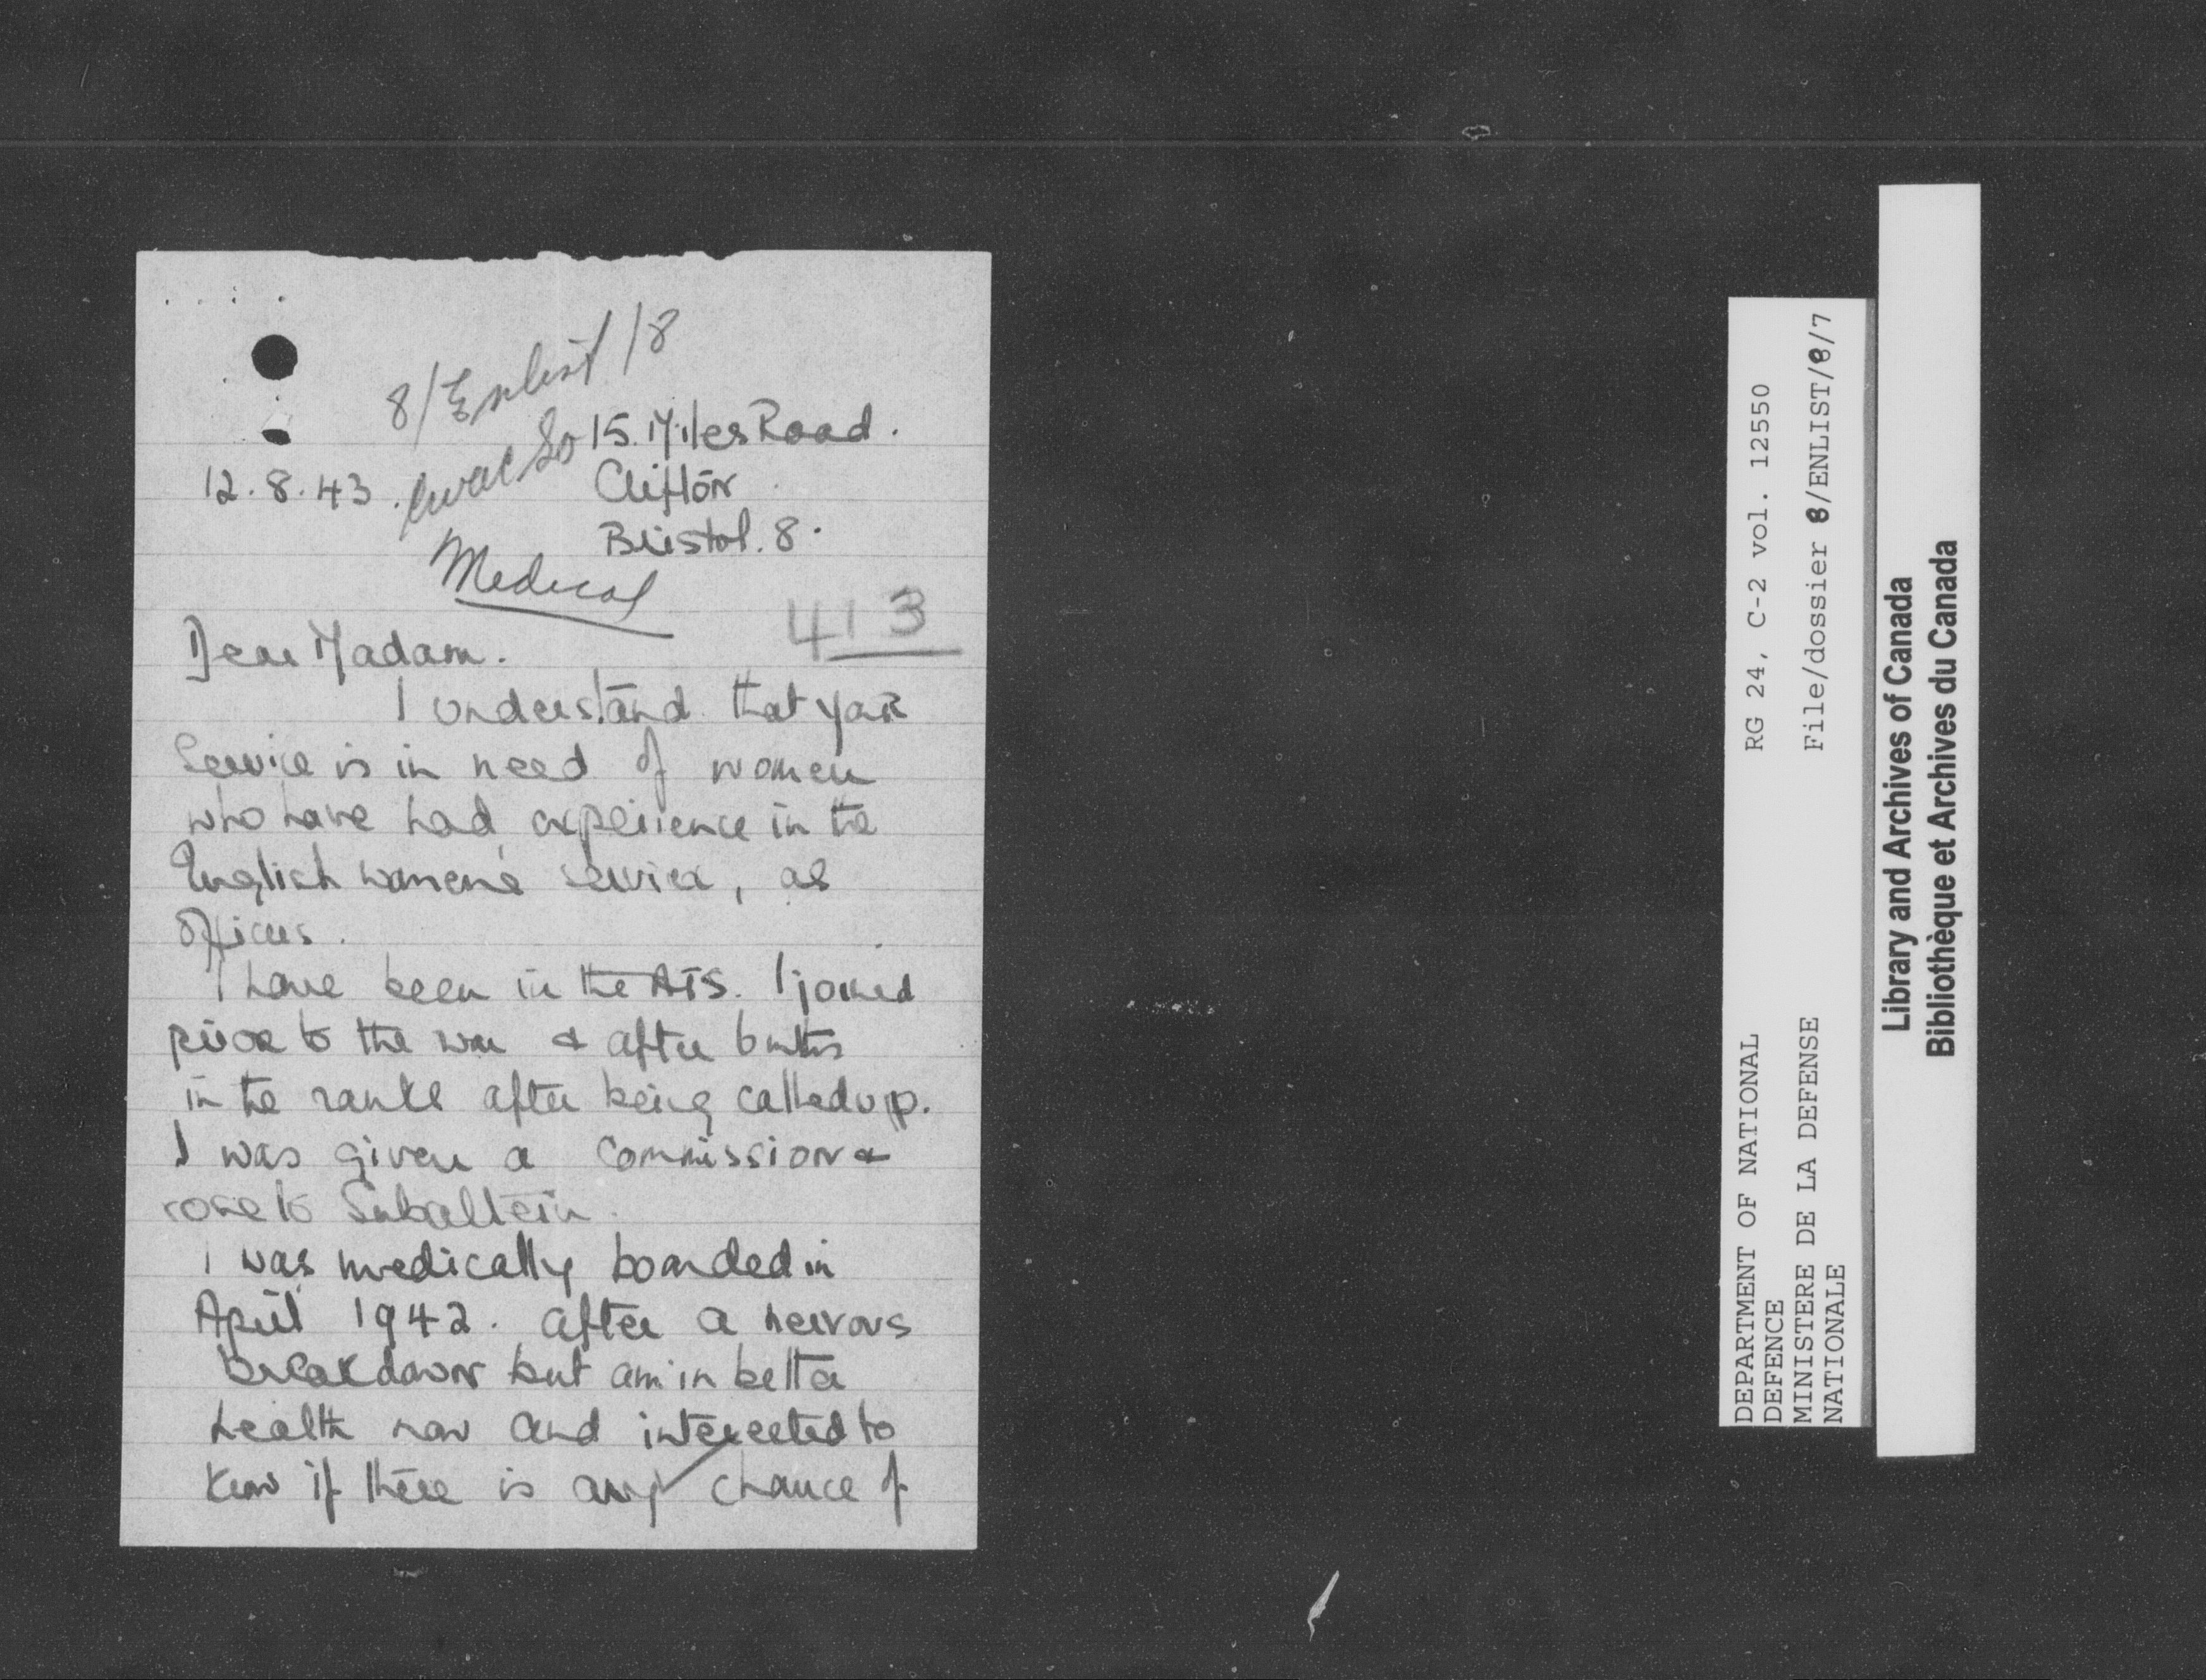 8/Enlist/8
cwac So
15. Miles Road.
12.8.43.
Clifton
Bristol. 8.
Medical
413
Dear Madam.
I understand that your
Service is in need of women
who have had experience in the
English women's service, as
Officers.
I have been in the ATS. I joined
prior to the war & after 6 mths
in the ranks after being called up.
I was given a commission &
rose to Subaltern.
I was medically boarded in
April 1942. after a nervous
breakdown but am in better
health now and interested to
know if there is any chance of
RG 24, C-2 vol. 12550
File/dossier 8/ENLIST/8/7
DEPARTMENT OF NATIONAL
DEFENCE
MINISTERE DE LA DEFENSE
NATIONALE
Library and Archives of Canada
Bibliothèque et Archives du Canada